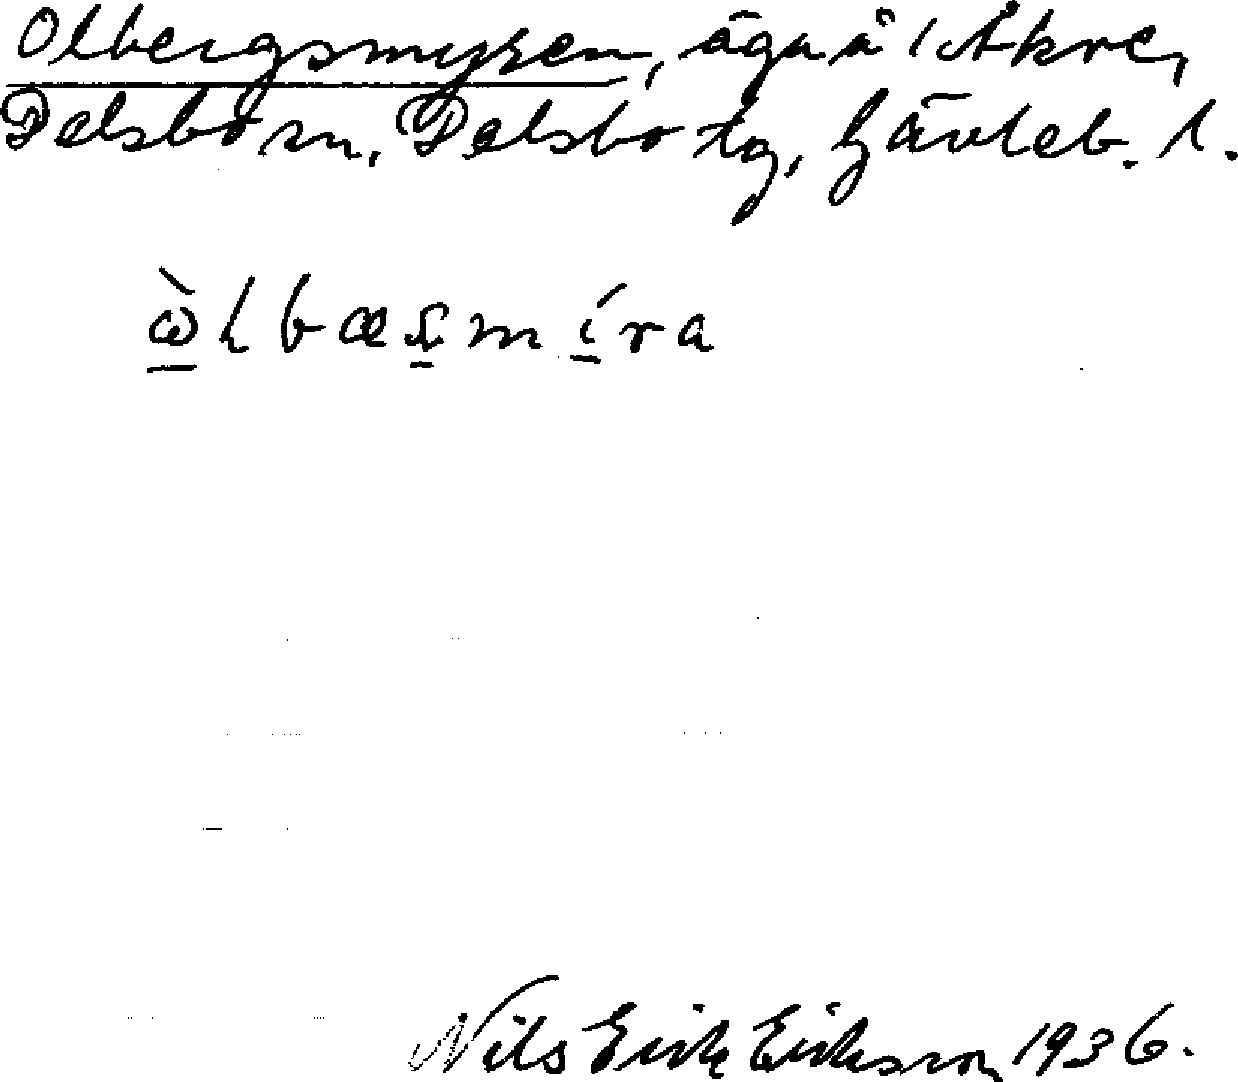 Olbergsmyren, äga å 1 Åkre,
Delsbo sn, Delsbo tg, Gävleb. l.
Nils Erik Eriksson, 1936.